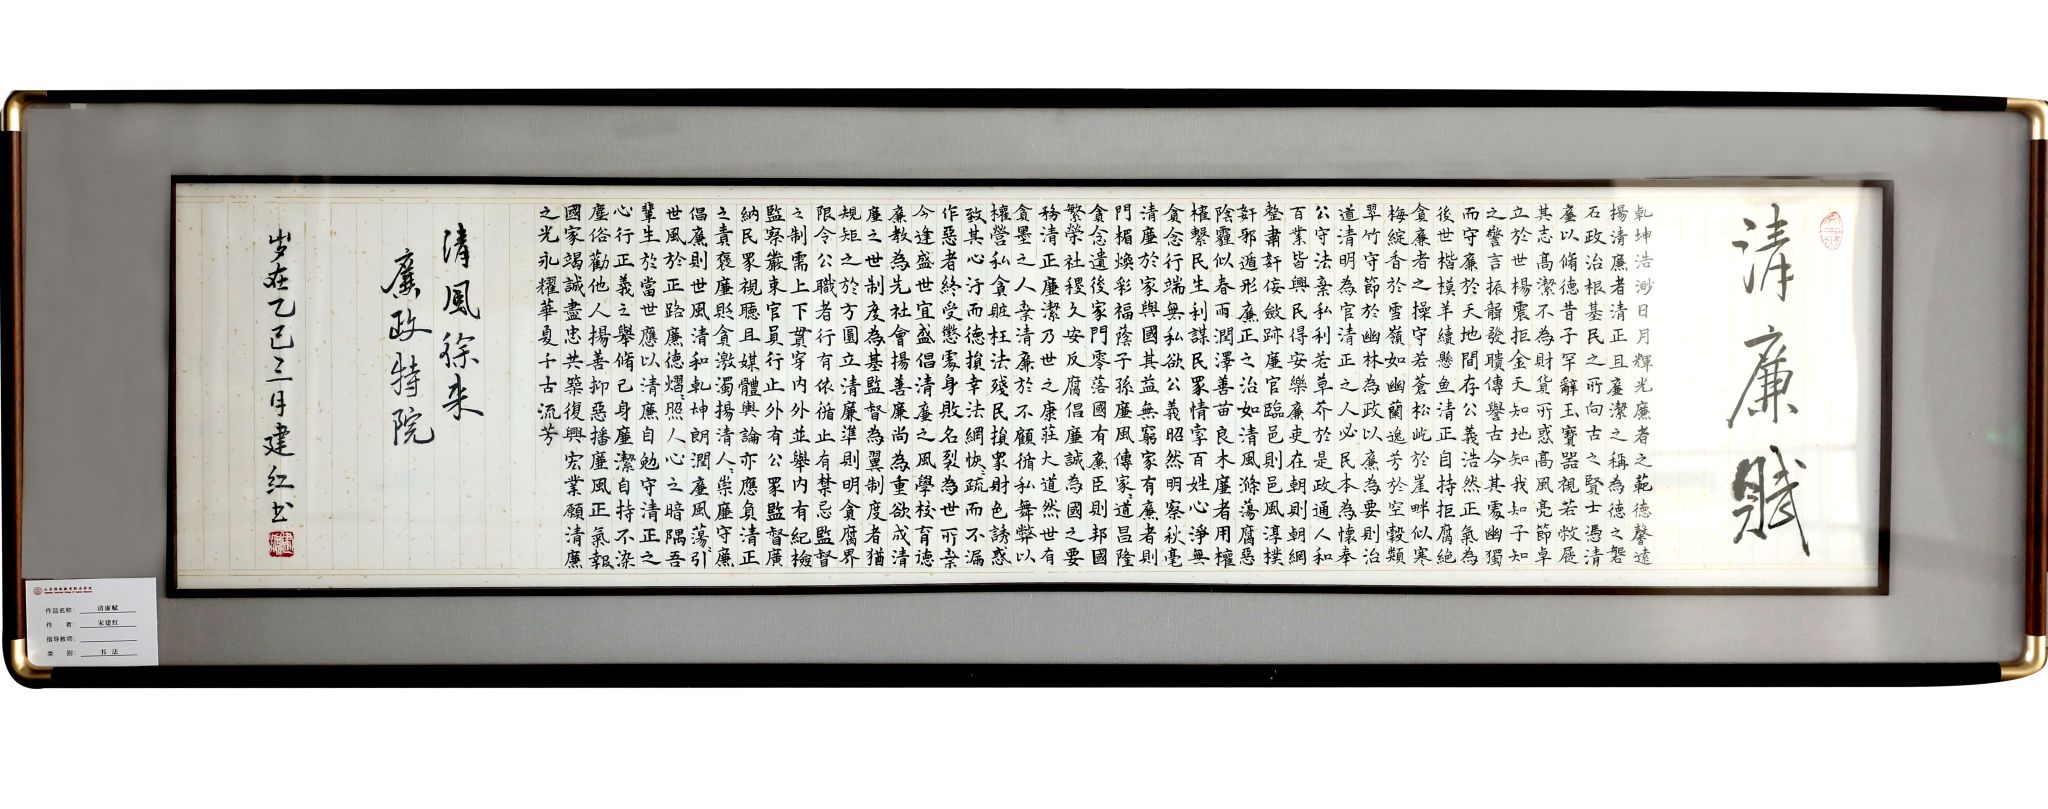 清廉賦
乾坤浩渺日月輝光廉者之範德馨遠
揚清廉者清正且廉潔之稱為德之磐
石政治根基民之所向古之賢士憑清
廉以脩德昔子罕辭玉寶器視若敝屣
其志高潔不為財貨所惑高風亮節卓
立於世楊震拒金天知地知我知子知
之警言振聾發聵傳譽古今其處幽獨
而守廉於天地間存公義浩然正氣為
後世楷模羊續懸鱼清正自持拒腐絕
貪廉者之操守若蒼松屹於崖畔似寒
梅綻香於雪嶺如幽蘭逸芳於空穀類
翠竹守節於幽林為政以廉為要則治
道清明為官清正之人必民本為懷奉
公守法棄私利若草芥於是政通人和
百業皆興民得安樂廉吏在朝則朝綱
整肅奸佞斂跡廉官臨邑則邑風淳樸
奸邪遁形廉正之治如清風滌蕩腐惡
陰霾似春雨潤澤善苗良木廉者用權
權繫民生利謀民眾情牽百姓心淨無
貪念行端無私欲公義昭然明察秋毫
清廉於家與國其益無窮家有廉者則
門楣煥彩福蔭子孫廉風傳家家道昌隆
貪念遺後家門零落國有廉臣則邦國
繁榮社稷久安反腐倡廉誠為國之要
務清正廉潔乃世之康莊大道然世有
貪墨之人棄清廉於不顧循私舞弊以
權營私貪贓枉法殘民損眾財色誘惑
致其心汙而德損幸法網恢恢疏而不漏
作惡者終受懲處身敗名裂為世所棄
今逢盛世宜盛倡清廉之風學校育德
廉教為先社會揚善廉尚為重欲成清
廉之世制度為基監督為翼制度者猶
規矩之於方圓立清廉準則明貪腐界
限令公職者行有依循止有禁忌監督
之制需上下貫穿內外並舉內有紀檢
監察嚴束官員行止外有公眾監督廣
納民眾視聽且媒體輿論亦應負清正
之責褒廉貶貪激濁揚清人人崇廉守廉
倡廉則世風清和乾坤朗潤廉風蕩蕩引
世風於正路廉德熠熠照人心之暗隅吾
輩生於當世應以清廉自勉守清正之
心行正義之舉脩己身廉潔自持不染
塵俗勸他人揚善抑惡播廉風正氣報
國家竭誠盡忠共築復興宏業願清廉
之光永耀華夏千古流芳
清風徐来
廉政特院
岁在乙巳三月建红书
作品名称：清廉赋
作 者：宋建红
指导教师：
类 别：书 法